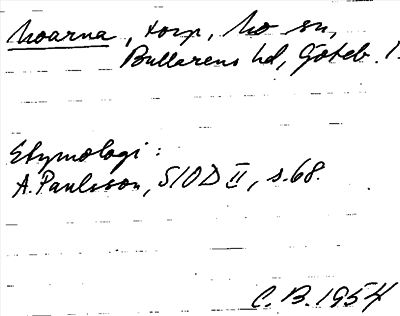 Moarna, torp, Mo sn,
Bullarens hd, Göteb. l.
Etymologi:
A. Paulsson, SIOD II, s. 68.
C. B. 1954